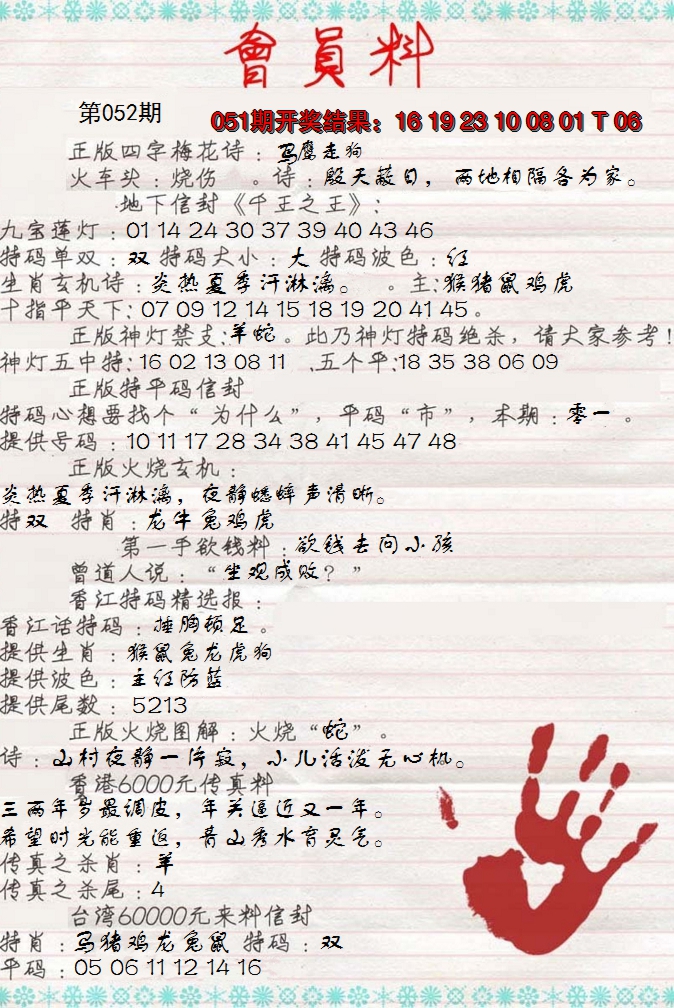 會員料
第052期
051期开奖结果：16 19 23 10 08 01 T 06
正版四字梅花诗：马鹰走狗
火车头：烧伤 。诗：殷天蔽日，两地相隔各为家。
地下信封《千王之王》：
九宝莲灯：01 14 24 30 37 39 40 43 46
特码单双：双 特码大小：大 特码波色：红
生肖玄机诗：炎热夏季汗淋漓。 。主：猴猪鼠鸡虎
十指平天下：07 09 12 14 15 18 19 20 41 45。
正版神灯禁支：羊蛇。此乃神灯特码绝杀，请大家参考！
神灯五中特：16 02 13 08 11 .五个平：18 35 38 06 09
正版特平码信封
特码心想要找个“为什么”，平码“市”，本期：零一。
提供号码：10 11 17 28 34 38 41 45 47 48
正版火烧玄机：
炎热夏季汗淋漓，夜静蟋蟀声清晰。
特双 特肖：龙牛兔鸡虎
第一手欲钱料：欲钱去问小孩
曾道人说：“坐观成败？”
香江特码精选报：
香江话特码：捶胸顿足。
提供生肖：猴鼠兔龙虎狗
提供波色：主红防蓝
提供尾数：5213
正版火烧图解：火烧“蛇”。
诗：山村夜静一片寂，小儿活泼无心机。
香港6000元传真料
三两年岁最调皮，年关逼近又一年。
希望时光能重返，青山秀水育灵气。
传真之杀肖：羊
传真之杀尾：4
台湾60000元来料信封
特肖：马猪鸡龙兔鼠 特码：双
平码：05 06 11 12 14 16